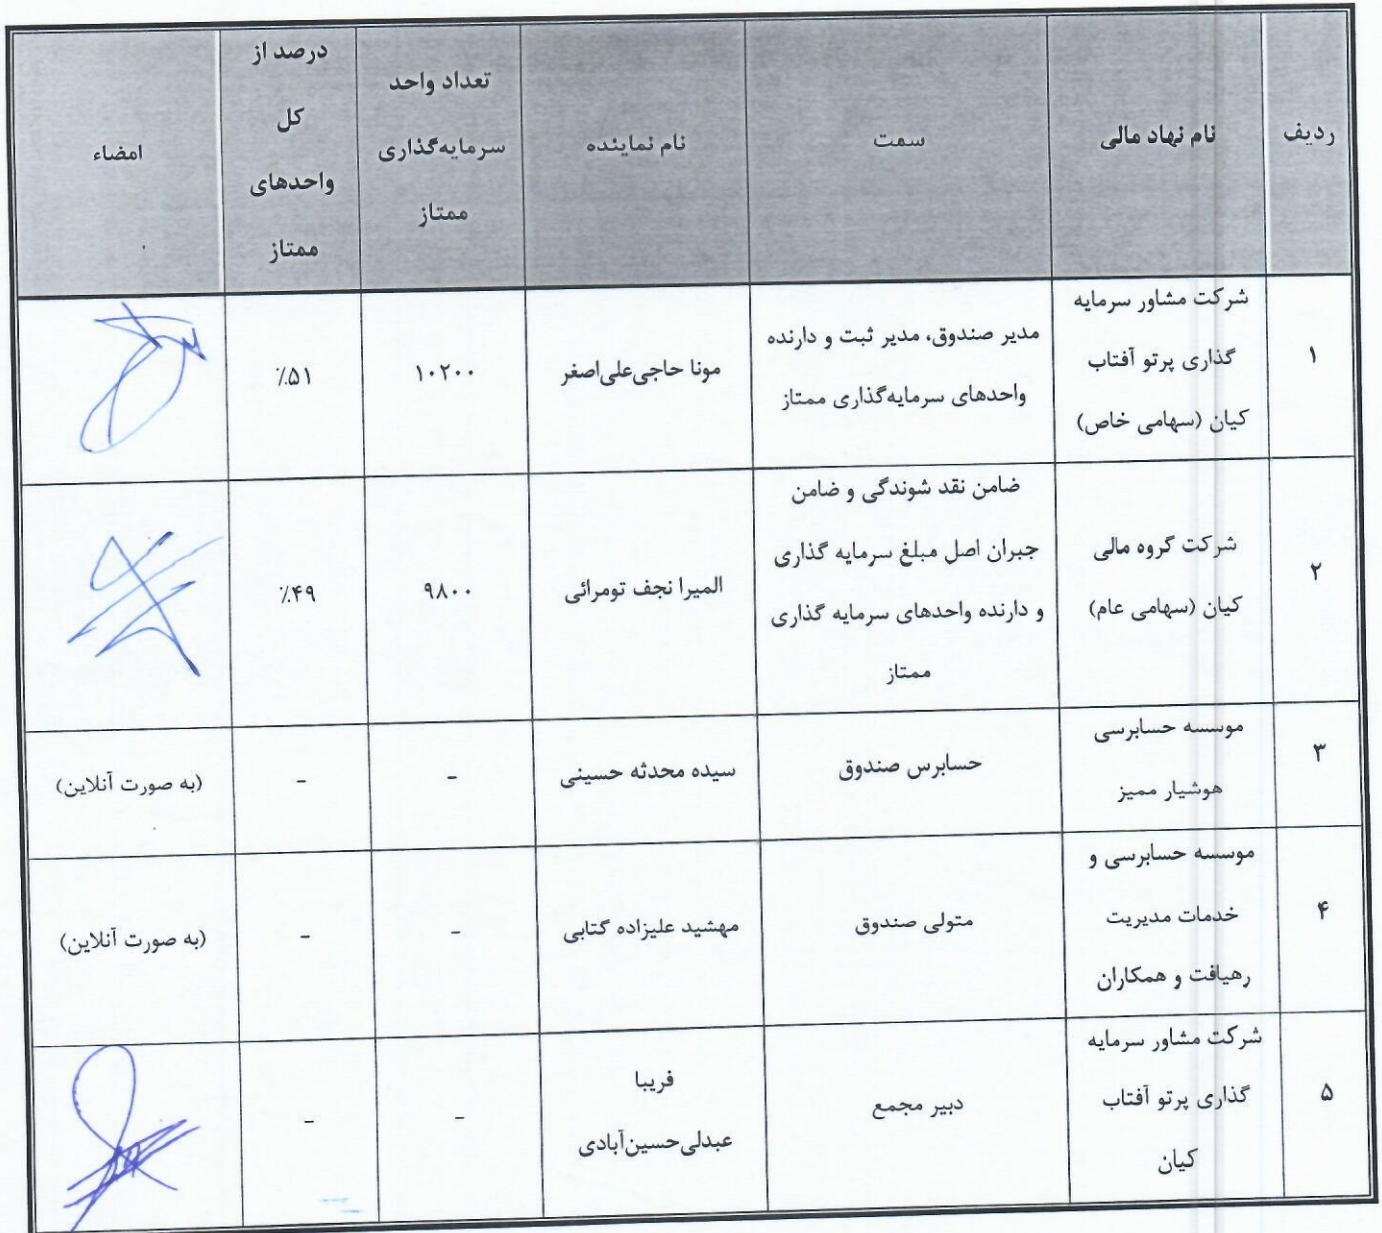 ردیف
نام نهاد مالی
سمت
نام نماینده
تعداد واحد
سرمایه‌گذاری
ممتاز
درصد از
کل
واحدهای
ممتاز
امضاء
۱
شرکت مشاور سرمایه
گذاری پرتو آفتاب
کیان (سهامی خاص)
مدیر صندوق، مدیر ثبت و دارنده
واحدهای سرمایه‌گذاری ممتاز
مونا حاجی‌علی‌اصغر
۱۰۲۰۰
٪۵۱
۲
شرکت گروه مالی
کیان (سهامی عام)
ضامن نقد شوندگی و ضامن
جبران اصل مبلغ سرمایه گذاری
و دارنده واحدهای سرمایه گذاری
ممتاز
المیرا نجف تومرائی
۹۸۰۰
٪۴۹
۳
موسسه حسابرسی
هوشیار ممیز
حسابرس صندوق
سیده محدثه حسینی
-
-
(به صورت آنلاین)
۴
موسسه حسابرسی و
خدمات مدیریت
رهیافت و همکاران
متولی صندوق
مهشید علیزاده گتابی
-
-
(به صورت آنلاین)
۵
شرکت مشاور سرمایه
گذاری پرتو آفتاب
کیان
دبیر مجمع
فریبا
عبدلی‌حسین‌آبادی
-
-